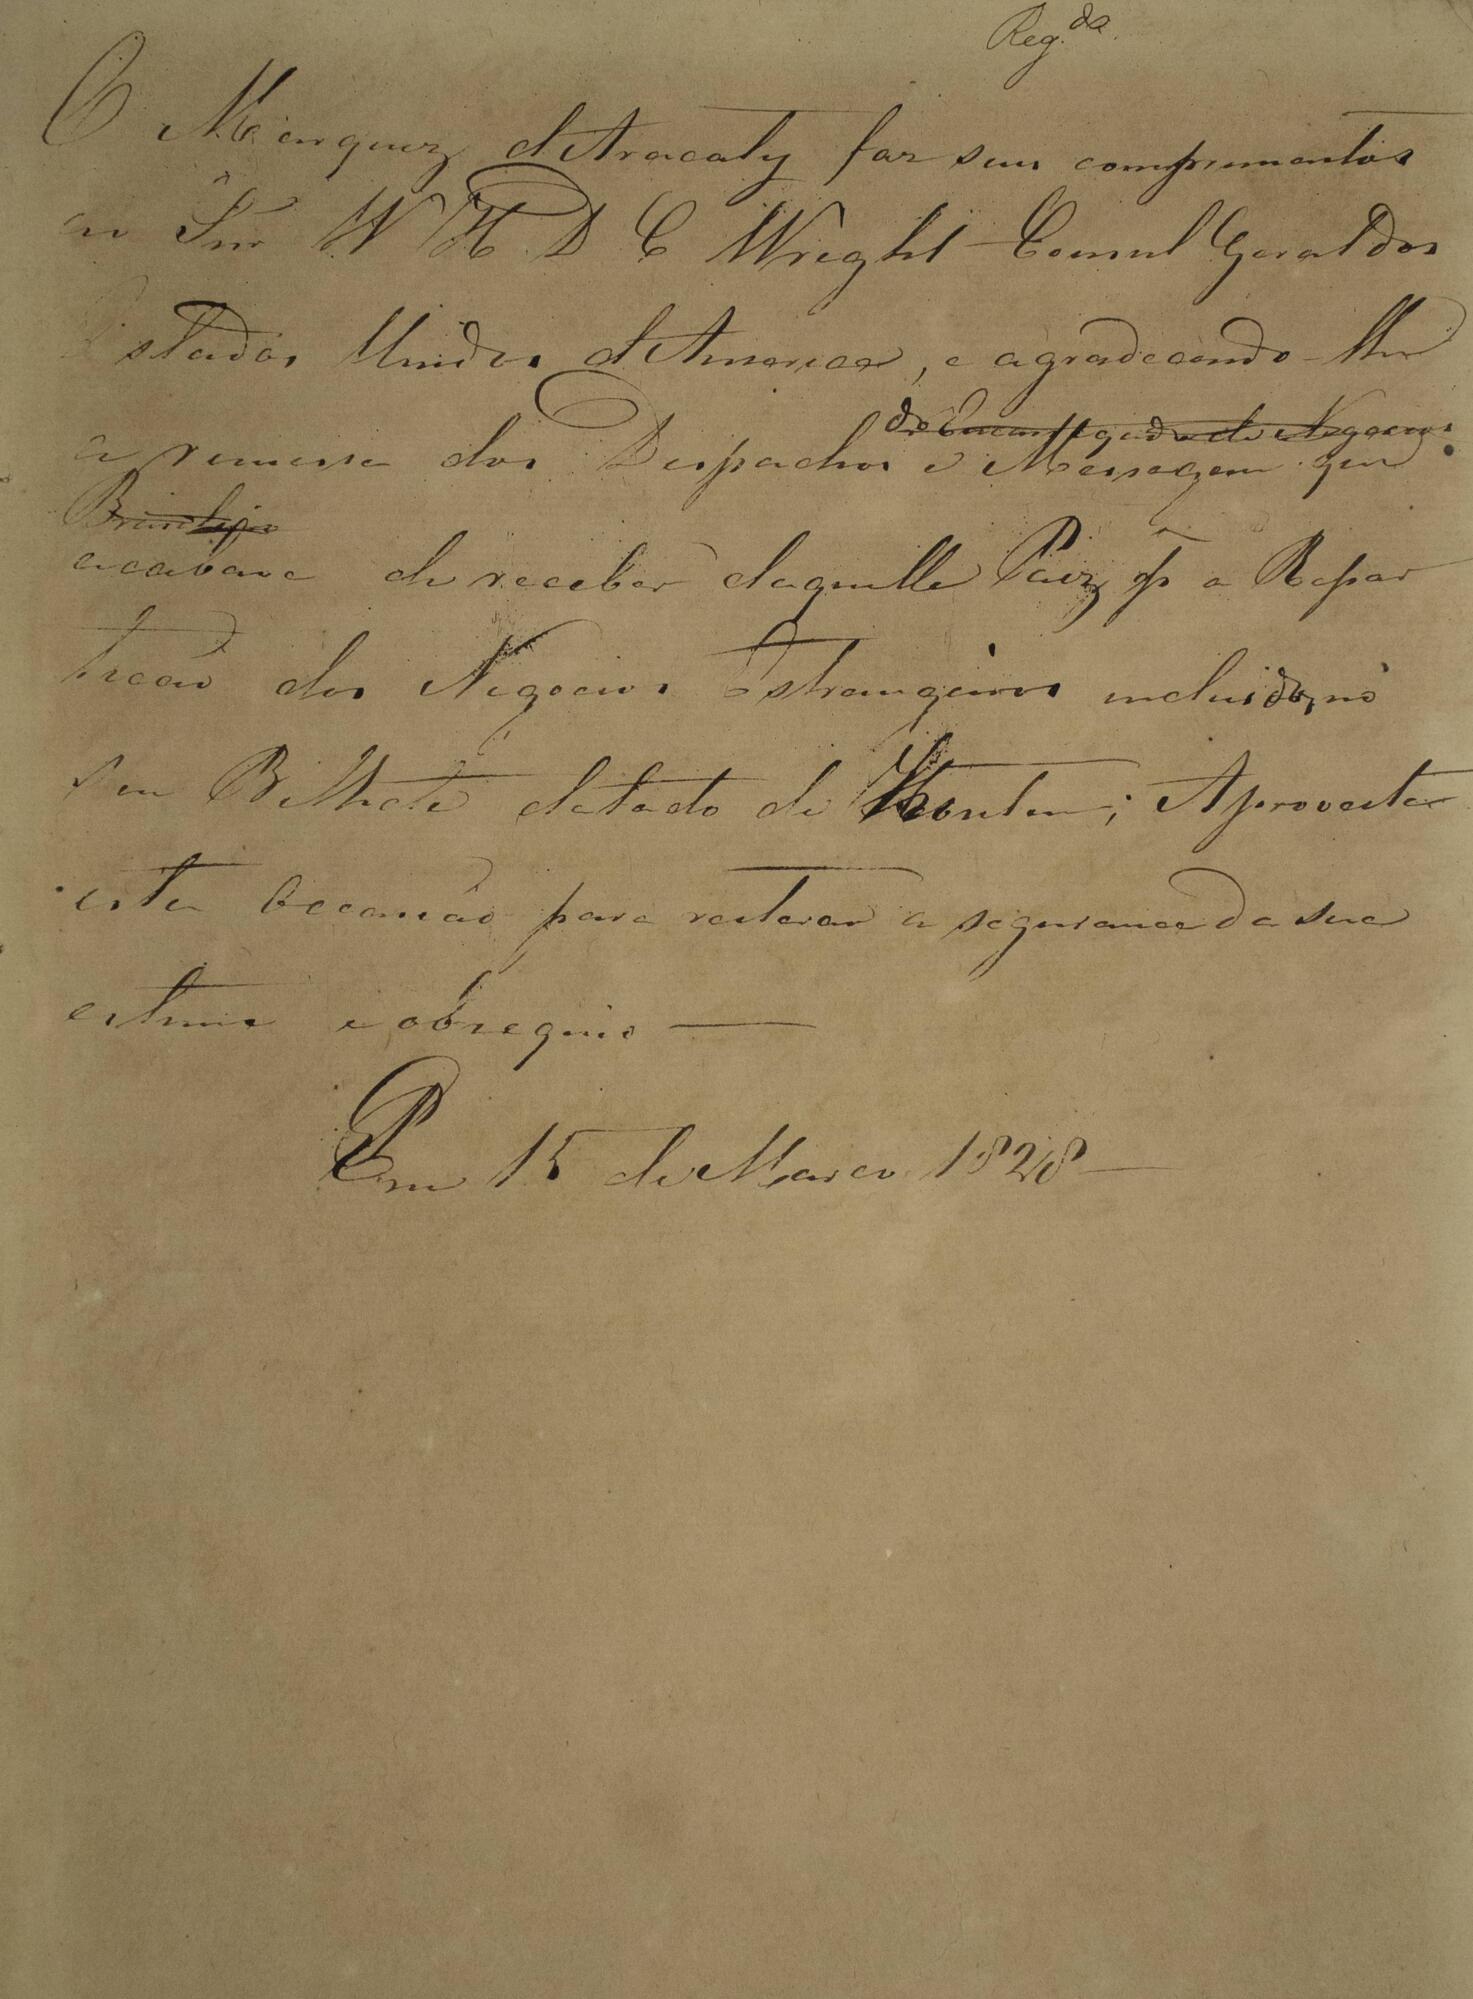 Reg.da
O Marquez d'Aracaty faz seus comprimentos
ao Snr W H D C Wright Consul Geral dos
Estados Unidos d'America, e agradecendo-lhe
do Encarregado de Negocios
a remessa dos Despachos e Mensagem que
Brasileiro
acabava de receber daquelle Paiz pa a Repar
tição dos Negocios Estrangeiros incluidos, no
seu Bilhete datado de Hontem; Aproveita
esta occasião para reiterar a segurança da sua
estima e obsequio —
Em 15 de Março 1828 —